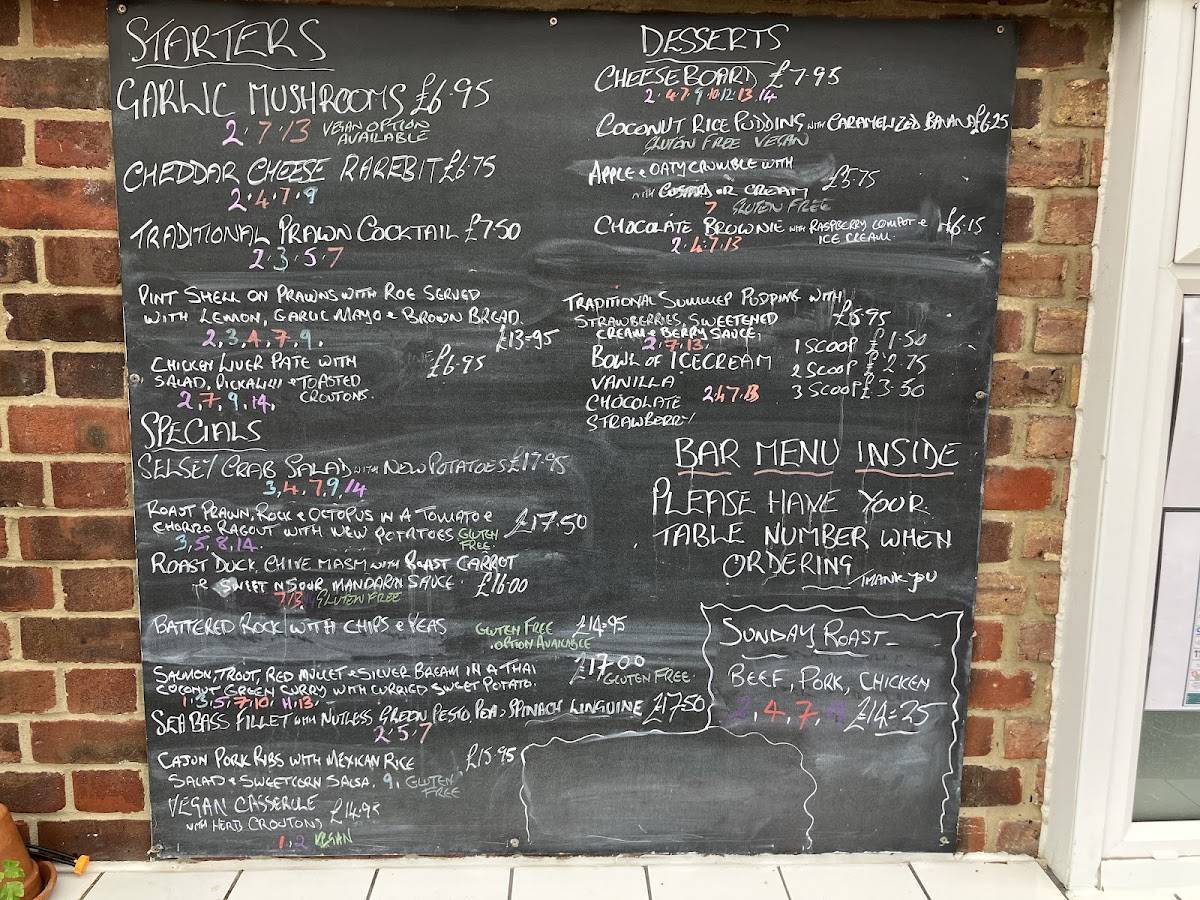 STARTERS
GARLIC MUSHROOMS £6.95
2.7.13 VEGAN OPTION
AVAILABLE
CHEDDAR CHEESE RAREBIT £6.75
2.4.7.9
TRADITIONAL PRAWN COCKTAIL £7.50
2.3.5.7
PINT SHELL ON PRAWNS WITH ROE SERVED
WITH LEMON, GARLIC MAYO & BROWN BREAD.
2,3,4,7,9, £13=95
CHICKEN LIVER PATE WITH £6.95
SALAD, PICKALILLI & TOASTED
CROUTONS.
2,7,9,14,
SPECIALS
SELSEY CRAB SALAD WITH NEW POTATOES £17.95
3,4,7,9,14
ROAST PRAWN, ROCK & OCTOPUS IN A TOMATO & £17.50
CHORIZO RAGOUT WITH NEW POTATOES GLUTEN
FREE
3,5,8,14.
ROAST DUCK, CHIVE MASH WITH ROAST CARROT
& SWEET N SOUR MANDARIN SAUCE. £16.00
7.13 GLUTEN FREE
BATTERED ROCK WITH CHIPS & PEAS GLUTEN FREE £14.95
OPTION AVAILABLE
SALMON, TROUT, RED MULLET & SILVER BREAM IN A THAI £17.00
COCONUT GREEN CURRY WITH CURRIED SWEET POTATO. GLUTEN FREE
1,3,5,7,10, 11,13,
SEA BASS FILLET WITH NUTLESS GREEN PESTO PEA & SPINACH LINGUINE £17.50
2.5.7
CAJUN PORK RIBS WITH MEXICAN RICE £15.95
SALAD & SWEETCORN SALSA. 9, GLUTEN
FREE
VEGAN CASSERULE £14.95
WITH HERB CROUTONS
1,2 VEGAN
DESSERTS
CHEESEBOARD £7.95
2.4.7.9.10.12.13.14
COCONUT RICE PUDDING WITH CARAMELIZED BANANA £6.25
GLUTEN FREE VEGAN
APPLE & OATY CRUMBLE WITH £5.75
WITH CUSTARD OR CREAM
7 GLUTEN FREE
CHOCOLATE BROWNIE WITH RASPBERRY COMPOT & £6.15
ICE CREAM.
2.4.7.13
TRADITIONAL SUMMER PUDDING WITH
STRAWBERRIES, SWEETENED £6.95
CREAM & BERRY SAUCE,
2,7,13,
BOWL OF ICECREAM 1 SCOOP £1.50
VANILLA 2 SCOOP £2.75
CHOCOLATE 2.4.7.13 3 SCOOP £3.50
STRAWBERRY
BAR MENU INSIDE
PLEASE HAVE YOUR
TABLE NUMBER WHEN
ORDERING THANK YOU
SUNDAY ROAST
BEEF, PORK, CHICKEN
2,4,7,9 £14=25